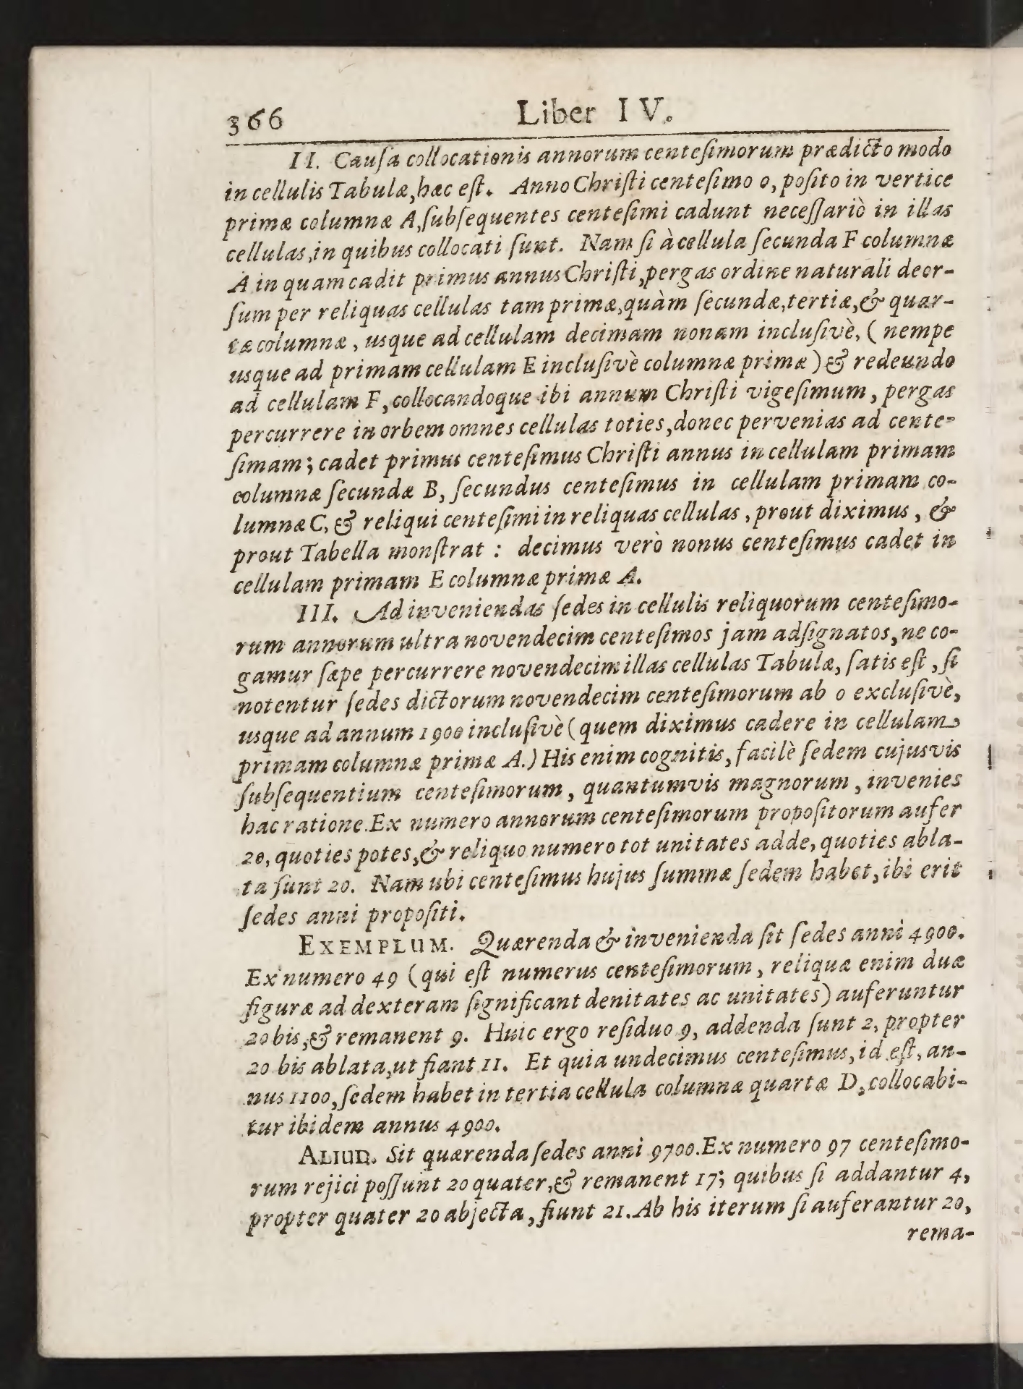 366 Liber IV.
II. Cauſa collocationis annorum centeſimorum prædicto modo
in cellulis Tabulæ, hæc eſt. Anno Chriſti centeſimo 0, poſito in vertice
primæ columnæ A, ſubſequentes centeſimi cadunt neceſſariò in illas
cellulas, in quibus collocati ſunt. Nam ſi à cellula ſecunda F columnæ
A in quam cadit primus annus Chriſti, pergas ordine naturali deor-
ſum per reliquas cellulas tam primæ, quàm ſecundæ, tertiæ, & quar-
tæ columnæ, usque ad cellulam decimam nonam incluſivè, (nempe
usque ad primam cellulam E incluſivè columnæ primæ) & redeundo
ad cellulam F, collocandoque ibi annum Chriſti vigeſimum, pergas
percurrere in orbem omnes cellulas toties, donec pervenias ad cente-
ſimam; cadet primus centeſimus Chriſti annus in cellulam primam
columnæ ſecundæ B, ſecundus centeſimus in cellulam primam co-
lumnæ C, & reliqui centeſimi in reliquas cellulas, prout diximus, &
prout Tabella monſtrat: decimus verò nonus centeſimus cadet in
cellulam primam E columnæ primæ A.
III. Ad inveniendas ſedes in cellulis reliquorum centeſimo-
rum annorum ultra novendecim centeſimos jam adſignatos, ne co-
gamur ſæpe percurrere novendecim illas cellulas Tabulæ, ſatis eſt, ſi
notentur ſedes dictorum novendecim centeſimorum ab 0 excluſivè,
usque ad annum 1900 incluſivè (quem diximus cadere in cellulam
primam columnæ primæ A.) His enim cognitis, facilè ſedem cujusvis
ſubſequentium centeſimorum, quantumvis magnorum, invenies
hac ratione. Ex numero annorum centeſimorum propoſitorum aufer
20, quoties potes, & reliquo numero tot unitates adde, quoties abla-
ta ſunt 20. Nam ubi centeſimus hujus ſummæ ſedem habet, ibi erit
ſedes anni propoſiti.
EXEMPLUM. Quærenda & invenienda ſit ſedes anni 4900.
Ex numero 49 (qui eſt numerus centeſimorum, reliquæ enim duæ
figuræ ad dexteram ſignificant denitates ac unitates) auferuntur
20 bis, & remanent 9. Huic ergo reſiduo 9, addenda ſunt 2, propter
20 bis ablata, ut fiant 11. Et quia undecimus centeſimus, id eſt, an-
nus 1100, ſedem habet in tertia cellula columnæ quartæ D, collocabi-
tur ibidem annus 4900.
ALIUD. Sit quærenda ſedes anni 9700. Ex numero 97 centeſimo-
rum rejici poſſunt 20 quater, & remanent 17; quibus ſi addantur 4,
propter quater 20 abjecta, fiunt 21. Ab his iterum ſi auferantur 20,
rema-